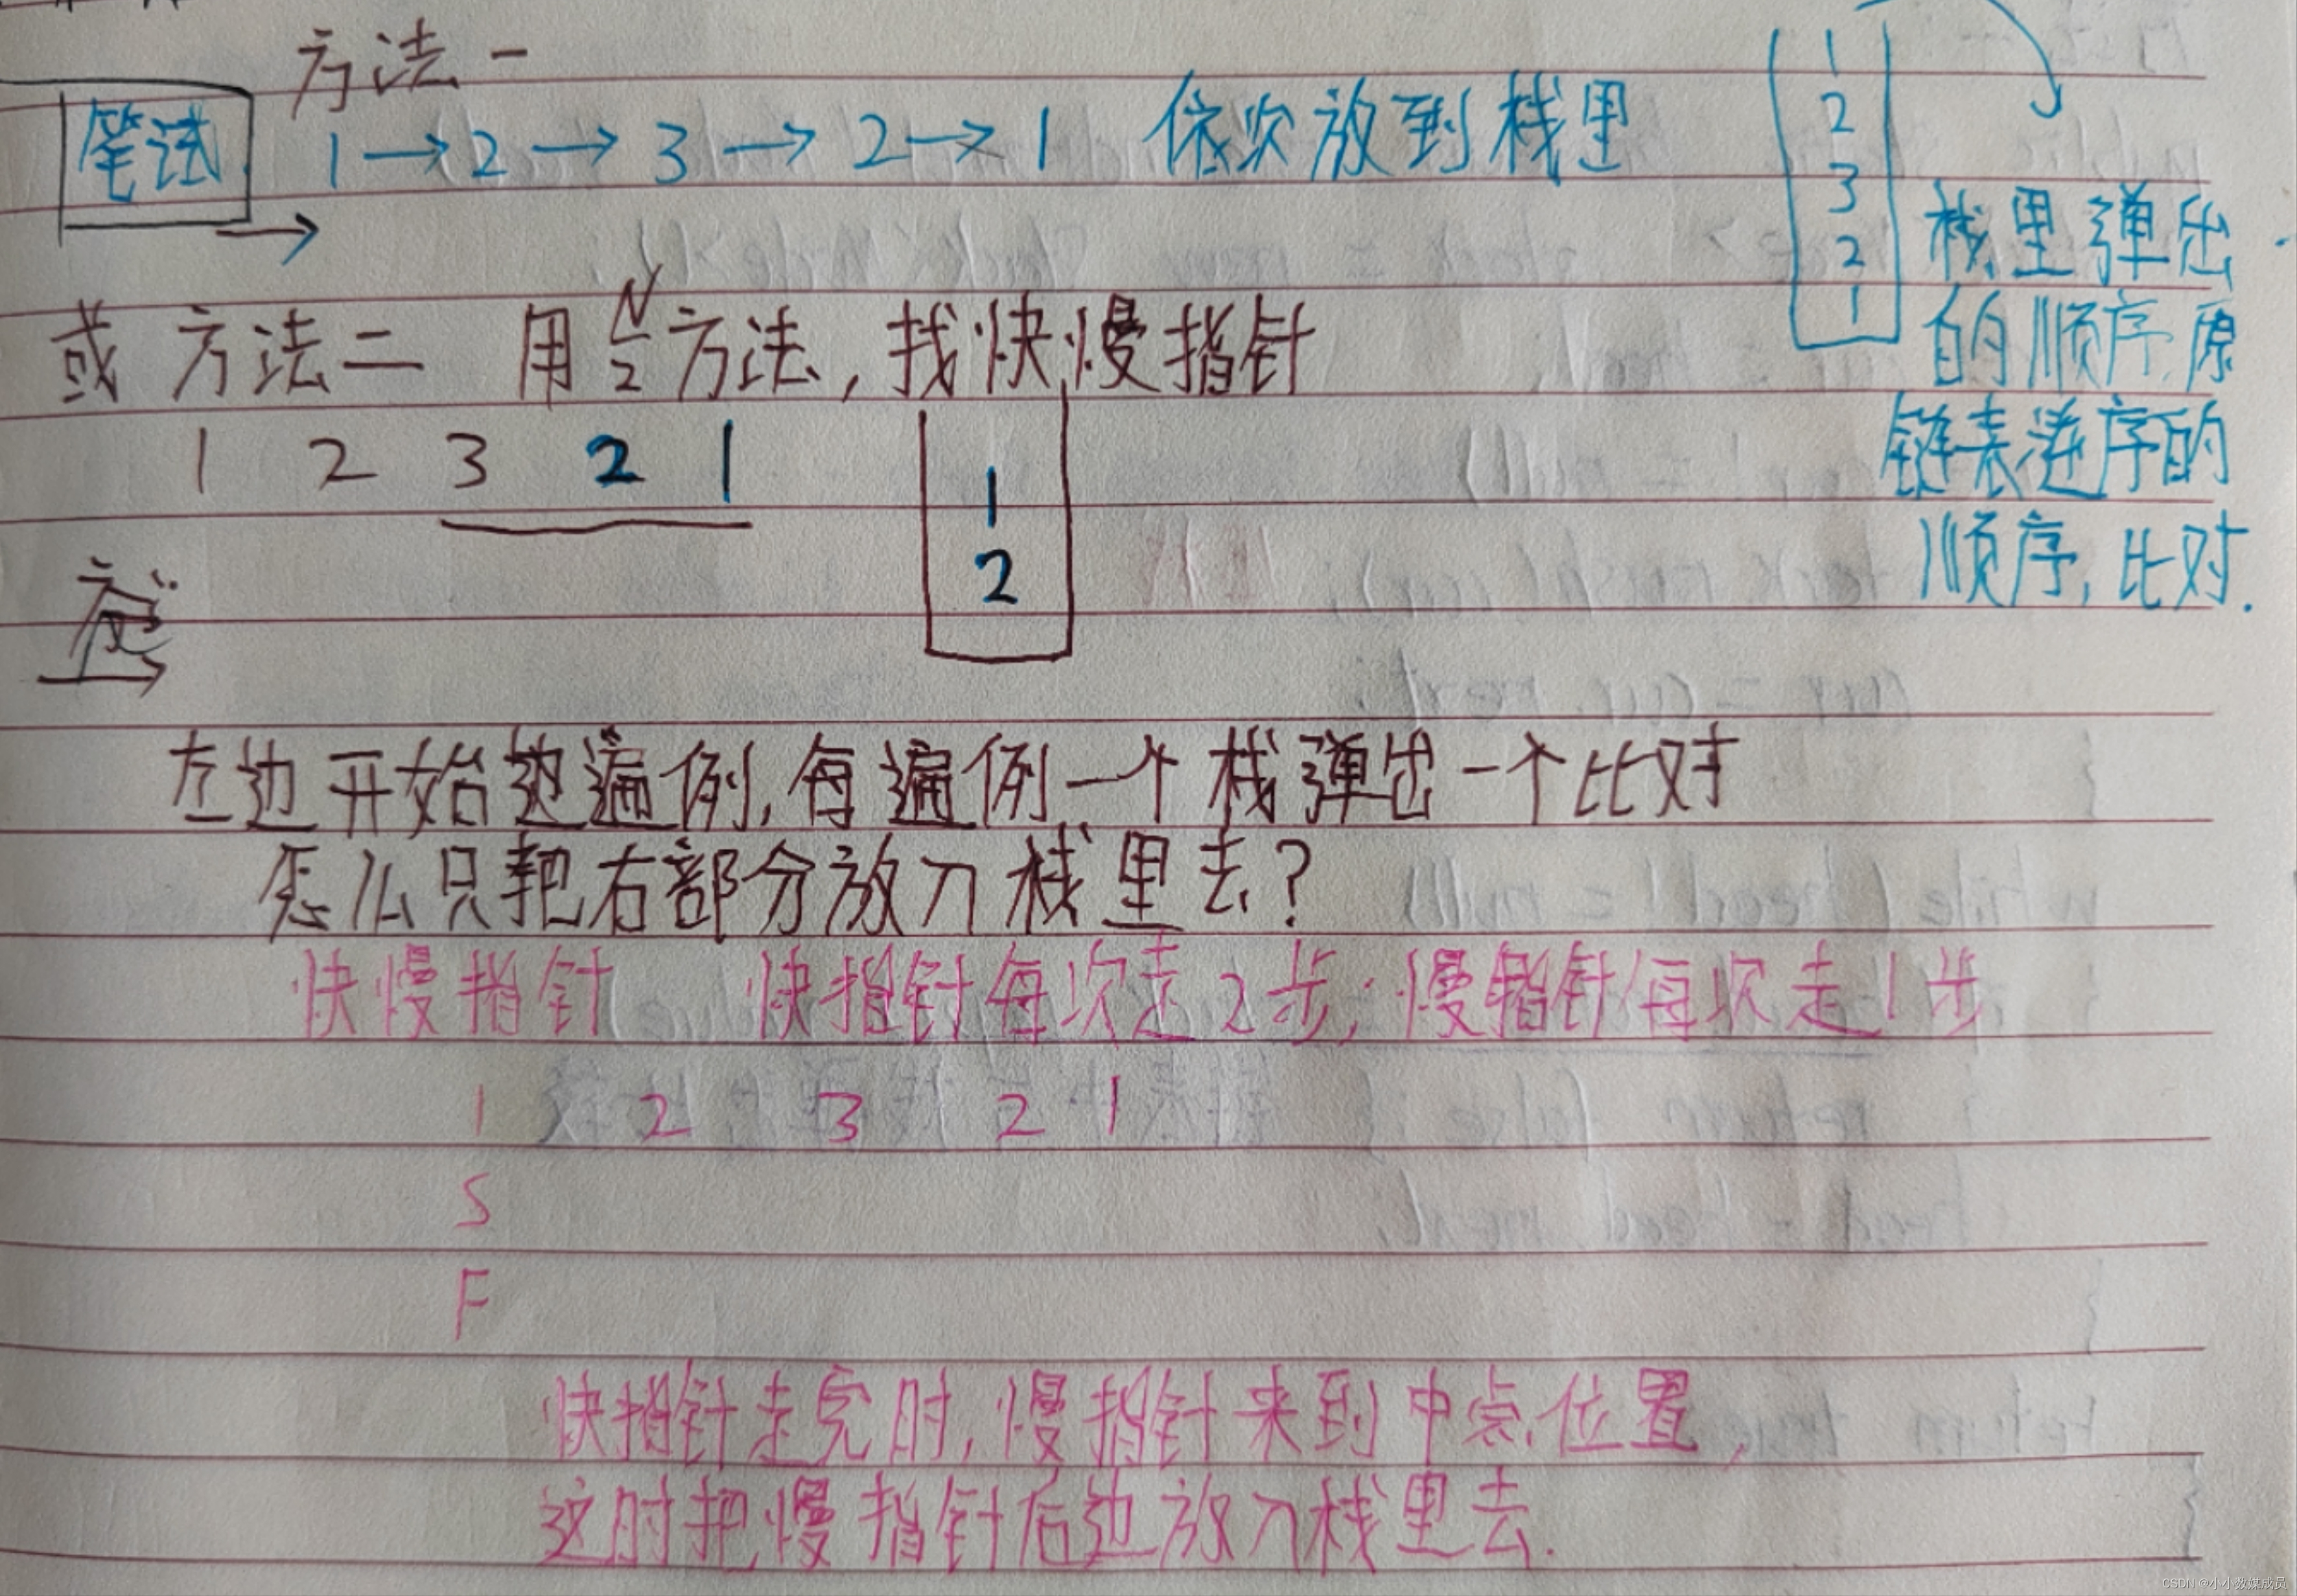 方法一
笔试
1 → 2 → 3 → 2 → 1 依次放到栈里
1
2
3
2
1
栈里弹出
的顺序,原
链表逆序的
顺序,比对.
或 方法二 用 N/2 方法,找快慢指针
1 2 3 2 1
1
2
左边开始边遍例,每遍例一个栈弹出一个比对
怎么只把右部分放入栈里去?
快慢指针 快指针每次走2步;慢指针每次走1步
1 2 3 2 1
S
F
快指针走完时,慢指针来到中点位置,
这时把慢指针后边放入栈里去.
CSDN @小小数媒成员